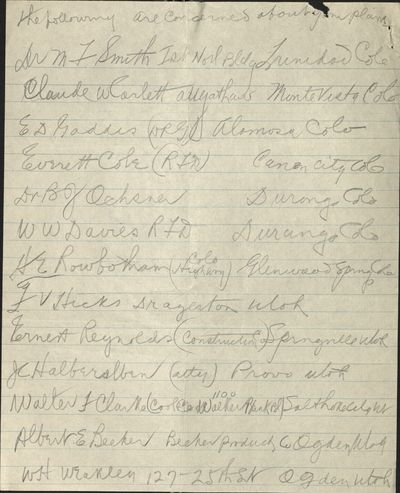 The following are concerned about gun plans
Dr M F Smith 1st Natl Bldg Trinidad Colo
Claude W Corlett Monte Vista Colo
E D Gaddis (DRG) Alamosa Colo
Everett Cole (RFD) Canon City Colo
Dr B J Ochsner Durango Colo
W W Davies RFD Durango Colo
H E Rowbotham (Colo Highway) Glenwood Spring Colo
F V Hicks Dragerton Utah
Ernest Reynolds (Construction Co) Springville Utah
J C Halbersleben (atty) Provo Utah
Walter F Clarke 1100 Walker Bank Bld Salt Lake City Ut
Albert E Becker Becker Products Co Ogden Utah
W H Weakley 127-25th St Ogden Utah